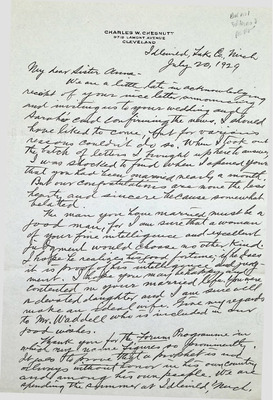 CHARLES W. CHESNUTT
9719 LAMONT AVENUE
CLEVELAND
Idlewild, Lake Co., Mich
July 20, 1929
My dear Sister Anna:
We are a little late in acknowledging
receipt of your announcing
and inviting us to your wedding, and
Sarah's card confirming the news. I should
have liked to come, but for various
reasons couldn't do so. When I took out
the batch of letters I brought up here to answer
I was shocked to find when I opened yours
that you had been married nearly a month.
But our congratulations are none the less
hearty and sincere because somewhat
belated.
The man you have married must be a
good man, for I am sure that a woman
of your fine intelligence and excellent
judgment would choose no other kind.
I hope he realizes his good fortune; if he does
it is proof of his intelligence and
judgment. I hope you may be happy and
contented in your married life. You were
a devoted daughter and I am sure will
make an ideal wife. Give my regards
to Mr. Waddell who is included in our
good wishes.
Thank you for the Forum Programme in
which my name figures so prominently.
It goes to prove that a prophet is not
always without honor in his own country
and among his own people. We are
spending the summer at Idlewild, Mich,